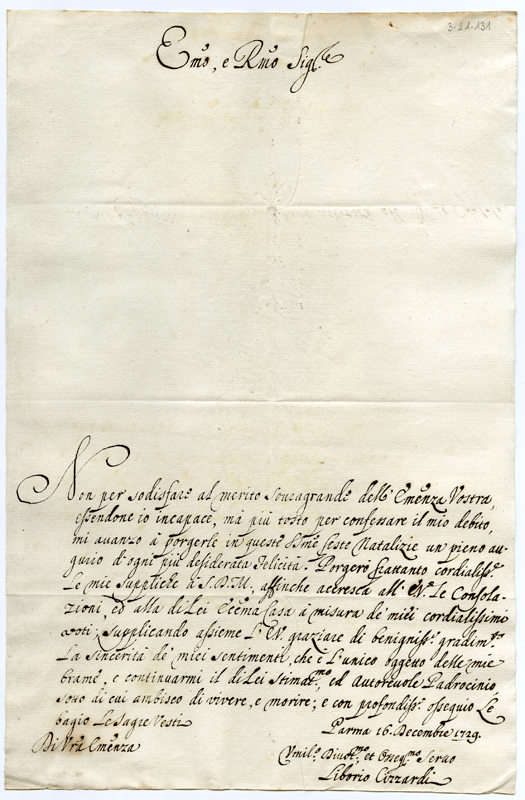 3-21-131
Emo, e Rmo Sig.re
Non per sodisfare al merito sovragrande dell' Emenza Vostra,
essendone io incapace, mà più tosto per confessare il mio debito,
mi avanzo à porgerle in queste SSme feste Natalizie un pieno au-
gurio d'ogni più desiderata felicità. Porgerò frattanto cordialiss.e
Le mie suppliche à S.D.M., affinche accresca all' E.V. Le Consola-
zioni, ed alla di Lei Eccma Casa à misura de' miei cordialissimi
voti; supplicando assieme L'E.V. graziare di benigniss.o gradim.to
La sincerità de' miei sentimenti, che è L'unico oggetto delle mie
brame, e continuarmi il di Lei stimat.mo, ed Autorevole Padrocinio,
sotto di cui ambisco di vivere, e morire; e con profondiss.o ossequio Le
bagio Le Sagre Vesti
Parma 16. Decembre 1729.
Di Vrã Emenza
Vmil.o Divot.mo, et Osseq.mo Servo
Liborio Cizzardi